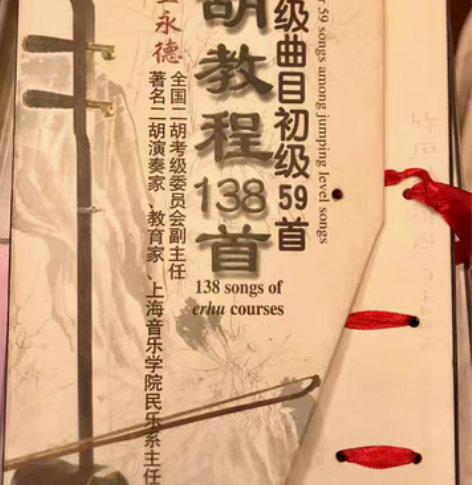 59 songs among jumping level songs
级曲目初级59首
胡教程138首
138 songs of
erhu courses
永德
全国二胡考级委员会副主任
著名二胡演奏家、教育家、上海音乐学院民乐系主任